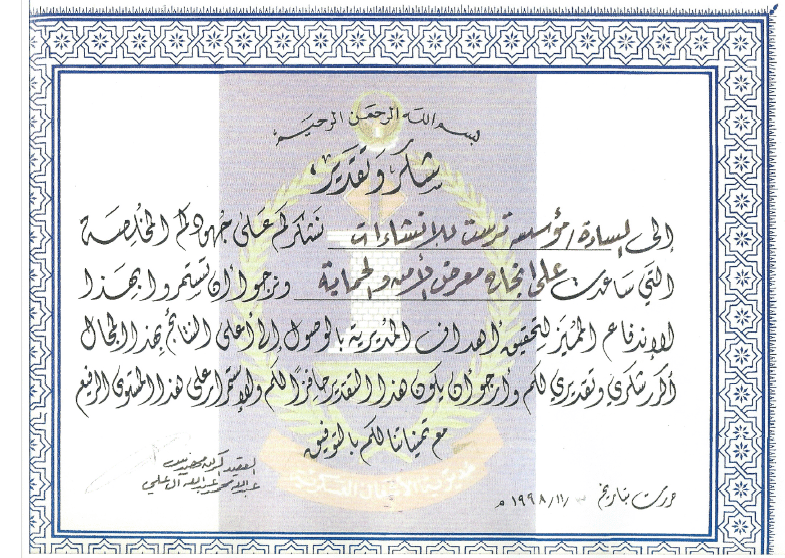 بسم الله الرحمن الرحيم
شكر وتقدير
إلى السادة/مؤسسه ترست للانشاءات نشكركم على جهودكم المخلصة
التي ساعدت على إنجاح معرض الأمن والحماية ونرجوا أن تستمروا بهذا
الاندفاع المميز لتحقيق أهداف المديرية بالوصول إلى أعلى النتائج بهذا المجال
أكرر شكري وتقديري لكم وارجو أن يكون هذا التقدير حافزاً لكم والإستمرار على هذا المستوى الرفيع
مع تمنياتنا لكم بالتوفيق
العقيد الركن مهندس
آل علي
حررت بتاريخ /١١/١٩٩٨ م
مديرية الأشغال العسكرية